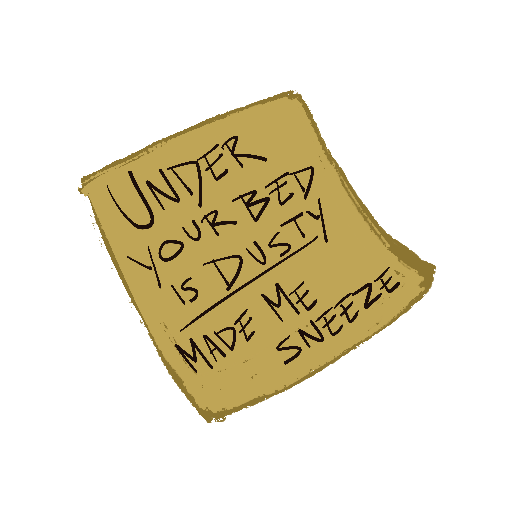 UNDER
YOUR BED
IS DUSTY
MADE ME
SNEEZE